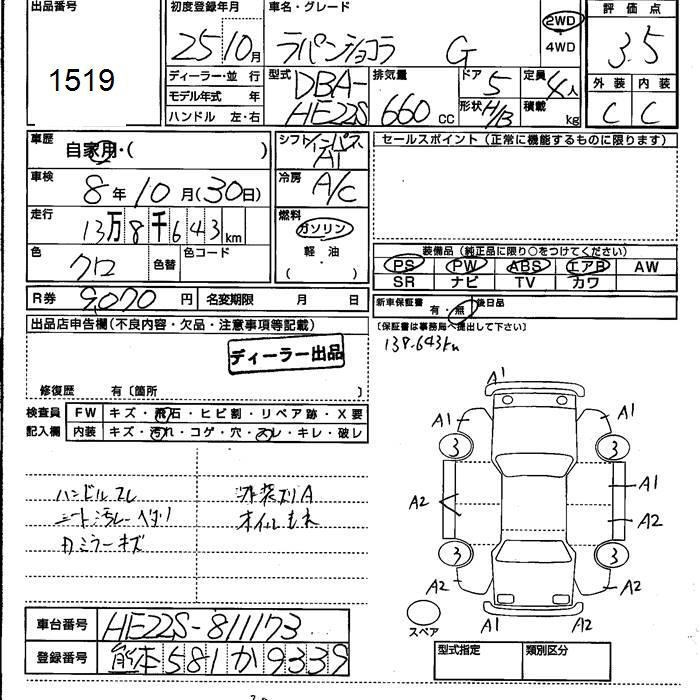 出品番号
1519
初度登録年月
25 10月
ディーラー・並 行
モデル年式 年
ハンドル 左・右
車名・グレード
ラパンショコラ G
2WD
・
4WD
型式 DBA-
HE22S
排気量
660 cc
ドア 5
形状 H/B
定員 4人
積載 kg
評 価 点
3.5
外 装 内 装
C C
車歴
自家用・( )
車検
8 年 10 月(30日)
走行
13万8千643km
色 クロ
色替
色コード
シフト インパネ
AT
冷房
A/C
燃料
ガソリン
軽 油
( ・ )
セールスポイント (正常に機能するものに限ります)
装備品(純正品に限り○をつけてください)
PS PW ABS エアB AW
SR ナビ TV カワ
R券 9,070 円 名変期限 月 日
新車保証書 有・無 後日品
(保証書は事務局へ提出して下さい)
138.643km
出品店申告欄(不良内容・欠品・注意事項等記載)
ディーラー出品
修復歴 有〔箇所 〕
検査員 FW キズ・飛石・ヒビ割・リペア跡・X要
記入欄 内装 キズ・汚れ・コゲ・穴・スレ・キレ・破レ
ハンドルスレ
シート汚レ ヘタリ
カミラーキズ
外装ズリA
オイルもれ
A1
A1 A1
3 3
A2 A1
A2
3 3
A2 A2
A1 A2
スペア
車台番号 HE22S-811173
登録番号 熊本581か9339
型式指定 類別区分